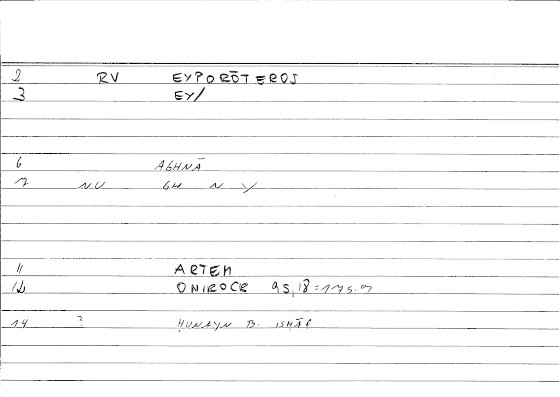 2 RV EYPORŌTEROS
3 EY/
6 AGHNĀ
7 NU GH N Y
11 ARTEM
12 ONIROCR 95,18=175.9
14 ? ḤUNAYN B. ISḤĀQ